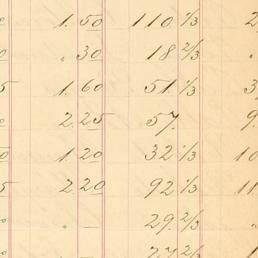 1.50 110 1/3
.30 18 2/3
1.60 51 1/3
2.25 57.
1.20 32 1/3
2.20 92 1/3
. — 29 2/3
27 2/3